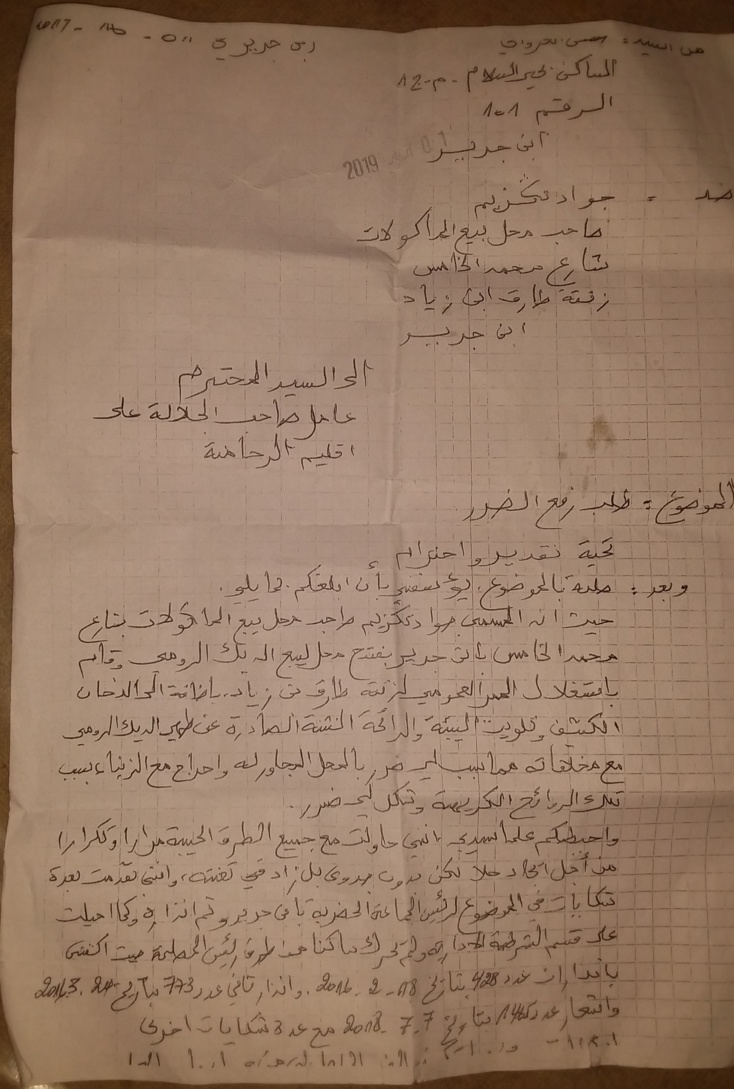 من السيد: حسن
ابن جرير في
الساكن بحي السلام - م - 12
الرقم 101
ابن جرير
2019
ضد : جواد
صاحب محل بيع المأكولات
شارع محمد الخامس
زنقة طارق ابن زياد
ابن جرير
الى السيد المحترم
عامل صاحب الجلالة على
اقليم الرحامنة
الموضوع : طلب رفع الضرر
تحية تقدير واحترام
وبعد : صلة بالموضوع، يؤسفني بأن ابلغكم بما يلي.
حيث انه المسمى جواد صاحب محل بيع المأكولات بشارع
محمد الخامس بابن جرير بفتح محل لبيع الديك الرومي وقام
باستغلال الممر العمومي لزنقة طارق بن زياد، باضافة الى الدخان
الكثيف وتلويث البيئة والرائحة النتنة الصادرة عن طهي الديك الرومي
مع مخلفاته مما سبب لي ضرر بالمحل المجاور له واحراج مع الزبناء بسبب
تلك الروائح الكريهة وتشكل لي ضرر.
واحيطكم علما سيدي، انني حاولت مع جميع الطرق الحبية مرارا وتكرارا
من أجل ايجاد حلا لكن بدون جدوى بل زاد في تعنته، وانني تقدمت بعدة
شكايات في الموضوع لرئيس الجماعة الحضرية بابن جرير وتم انذاره وكما احيلت
على قسم الشرطة الادارية ولم تحرك ساكنا من طرف رئيس المصلحة حيث اكتفى
بانذارات عدد 428 بتاريخ 18 - 2 - 2016. وانذار ثاني عدد 773 بتاريخ 24. 3. 2016
واشعار عدد بتاريخ 7 - 7 - 2018 مع عدة شكايات اخرى